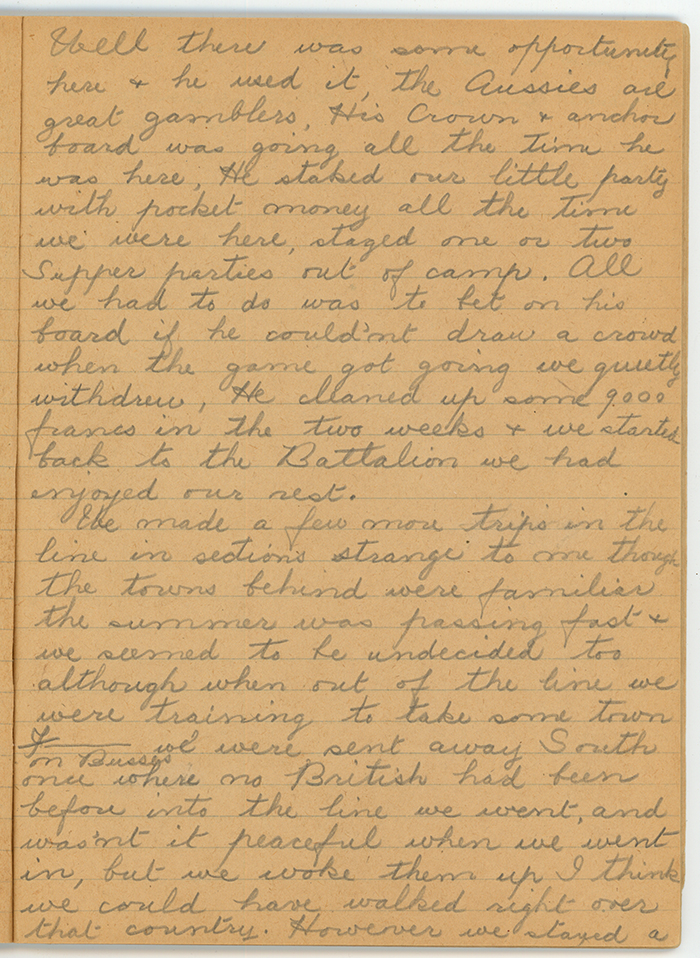 Well there was some opportunity
here & he used it, the Aussies are
great gamblers, His Crown & anchor
board was going all the time he
was here, He staked our little party
with pocket money all the time
we were here, staged one or two
Supper parties out of camp. All
we had to do was to bet on his
board if he could'nt draw a crowd
when the game got going we quietly
withdrew, He cleaned up some 9000
francs in the two weeks & we started
back to the Battalion we had
enjoyed our rest.
We made a few more trips in the
line in sections strange to me though
the towns behind were familiar
the summer was passing fast &
we seemed to be undecided too
although when out of the line we
were training to take some town
F—— we were sent away South
on Busses
once where no British had been
before into the line we went, and
was'nt it peaceful when we went
in, but we woke them up I think
we could have walked right over
that country. However we stayed a